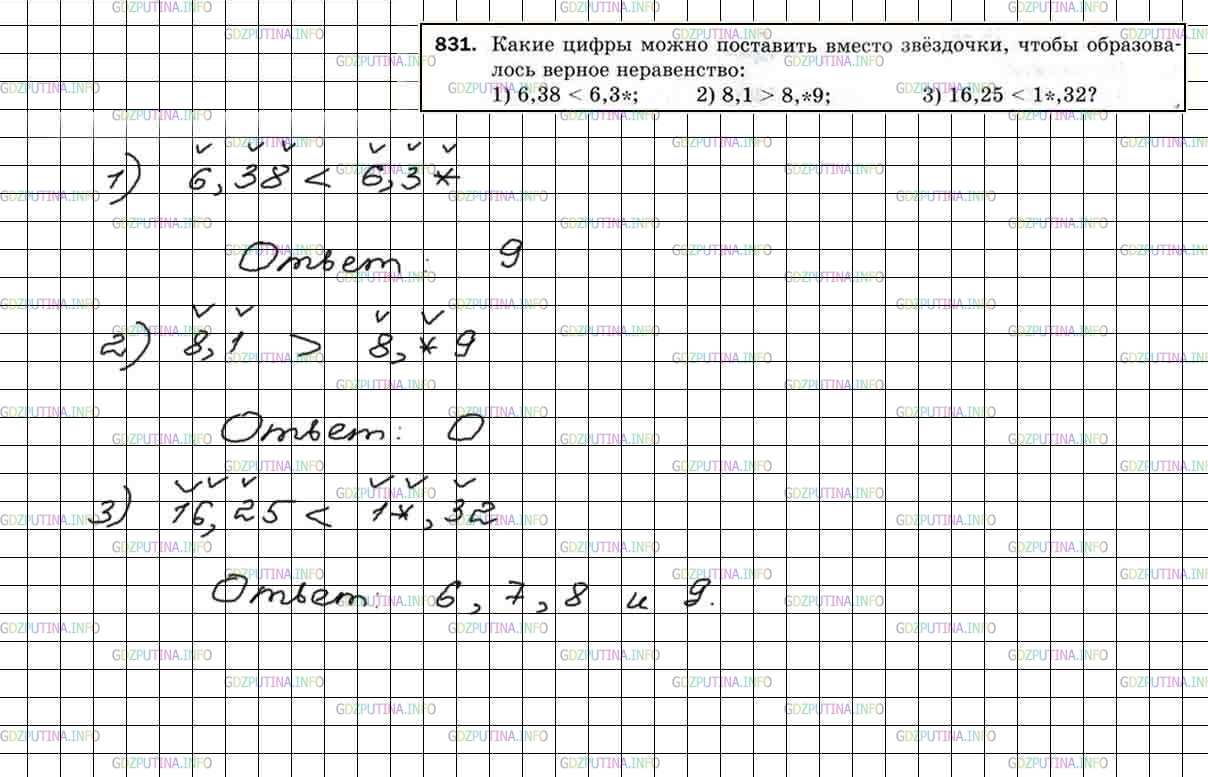 831. Какие цифры можно поставить вместо звёздочки, чтобы образова-
лось верное неравенство:
1) 6,38 < 6,3*; 2) 8,1 > 8,*9; 3) 16,25 < 1*,32?
1) 6,38 < 6,3*
Ответ: 9
2) 8,1 > 8,*9
Ответ: 0
3) 16,25 < 1*,32
Ответ: 6, 7, 8 и 9.
GDZPUTINA.INFO